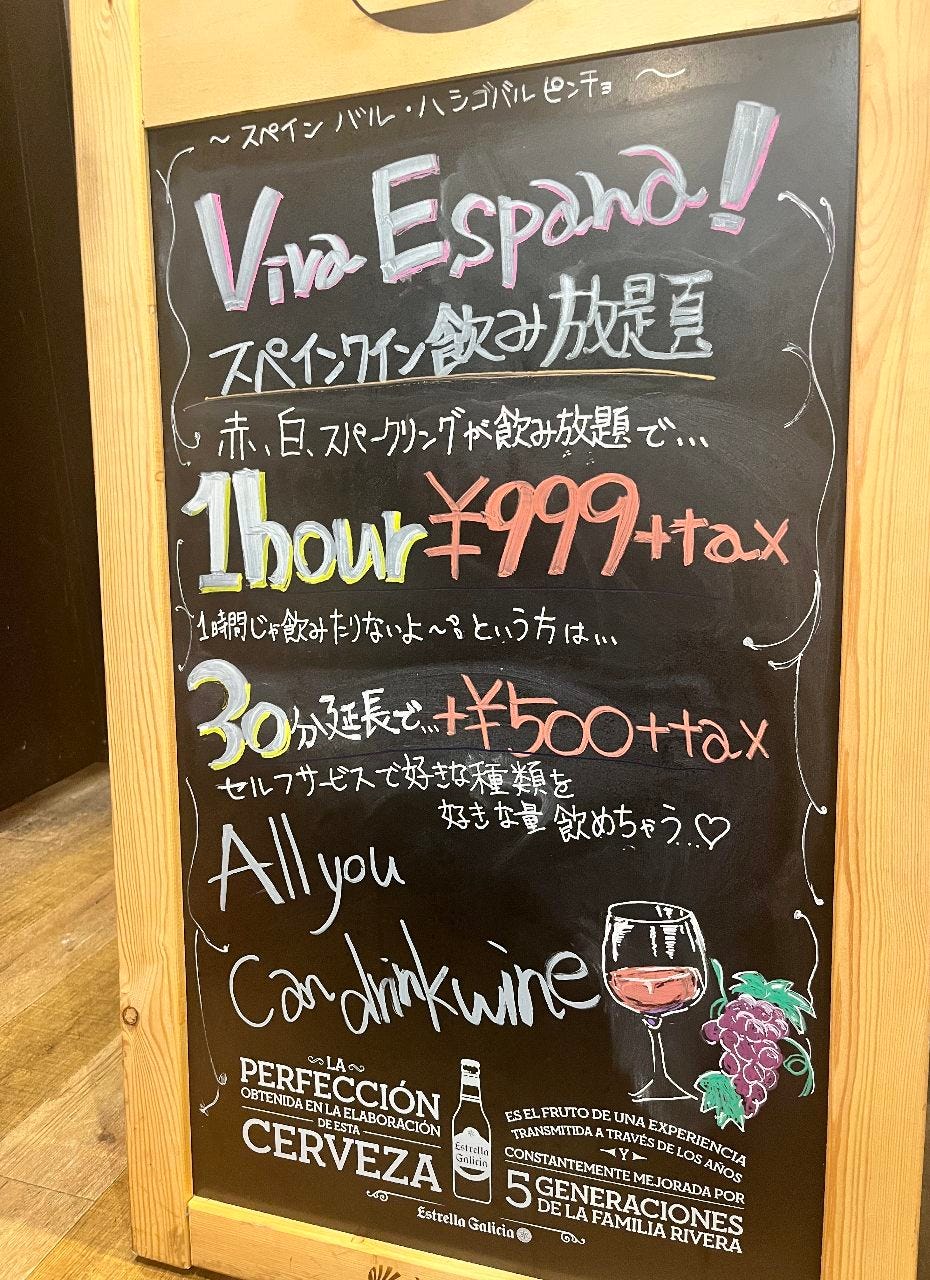 ～スペインバル・ハシゴバル ピンチョ～
Viva Espana!
スペインワイン飲み放題
赤、白、スパークリングが飲み放題で…
1hour ¥999+tax
1時間じゃ飲みたりないよ～。という方は…
30分延長で…+¥500+tax
セルフサービスで好きな種類を
好きな量 飲めちゃう…♡
All you
Can drink wine
LA
PERFECCIÓN
OBTENIDA EN LA ELABORACIÓN
DE ESTA
CERVEZA
Estrella
Galicia
ES EL FRUTO DE UNA EXPERIENCIA
TRANSMITIDA A TRAVÉS DE LOS AÑOS
Y
CONSTANTEMENTE MEJORADA POR
5 GENERACIONES
DE LA FAMILIA RIVERA
Estrella Galicia